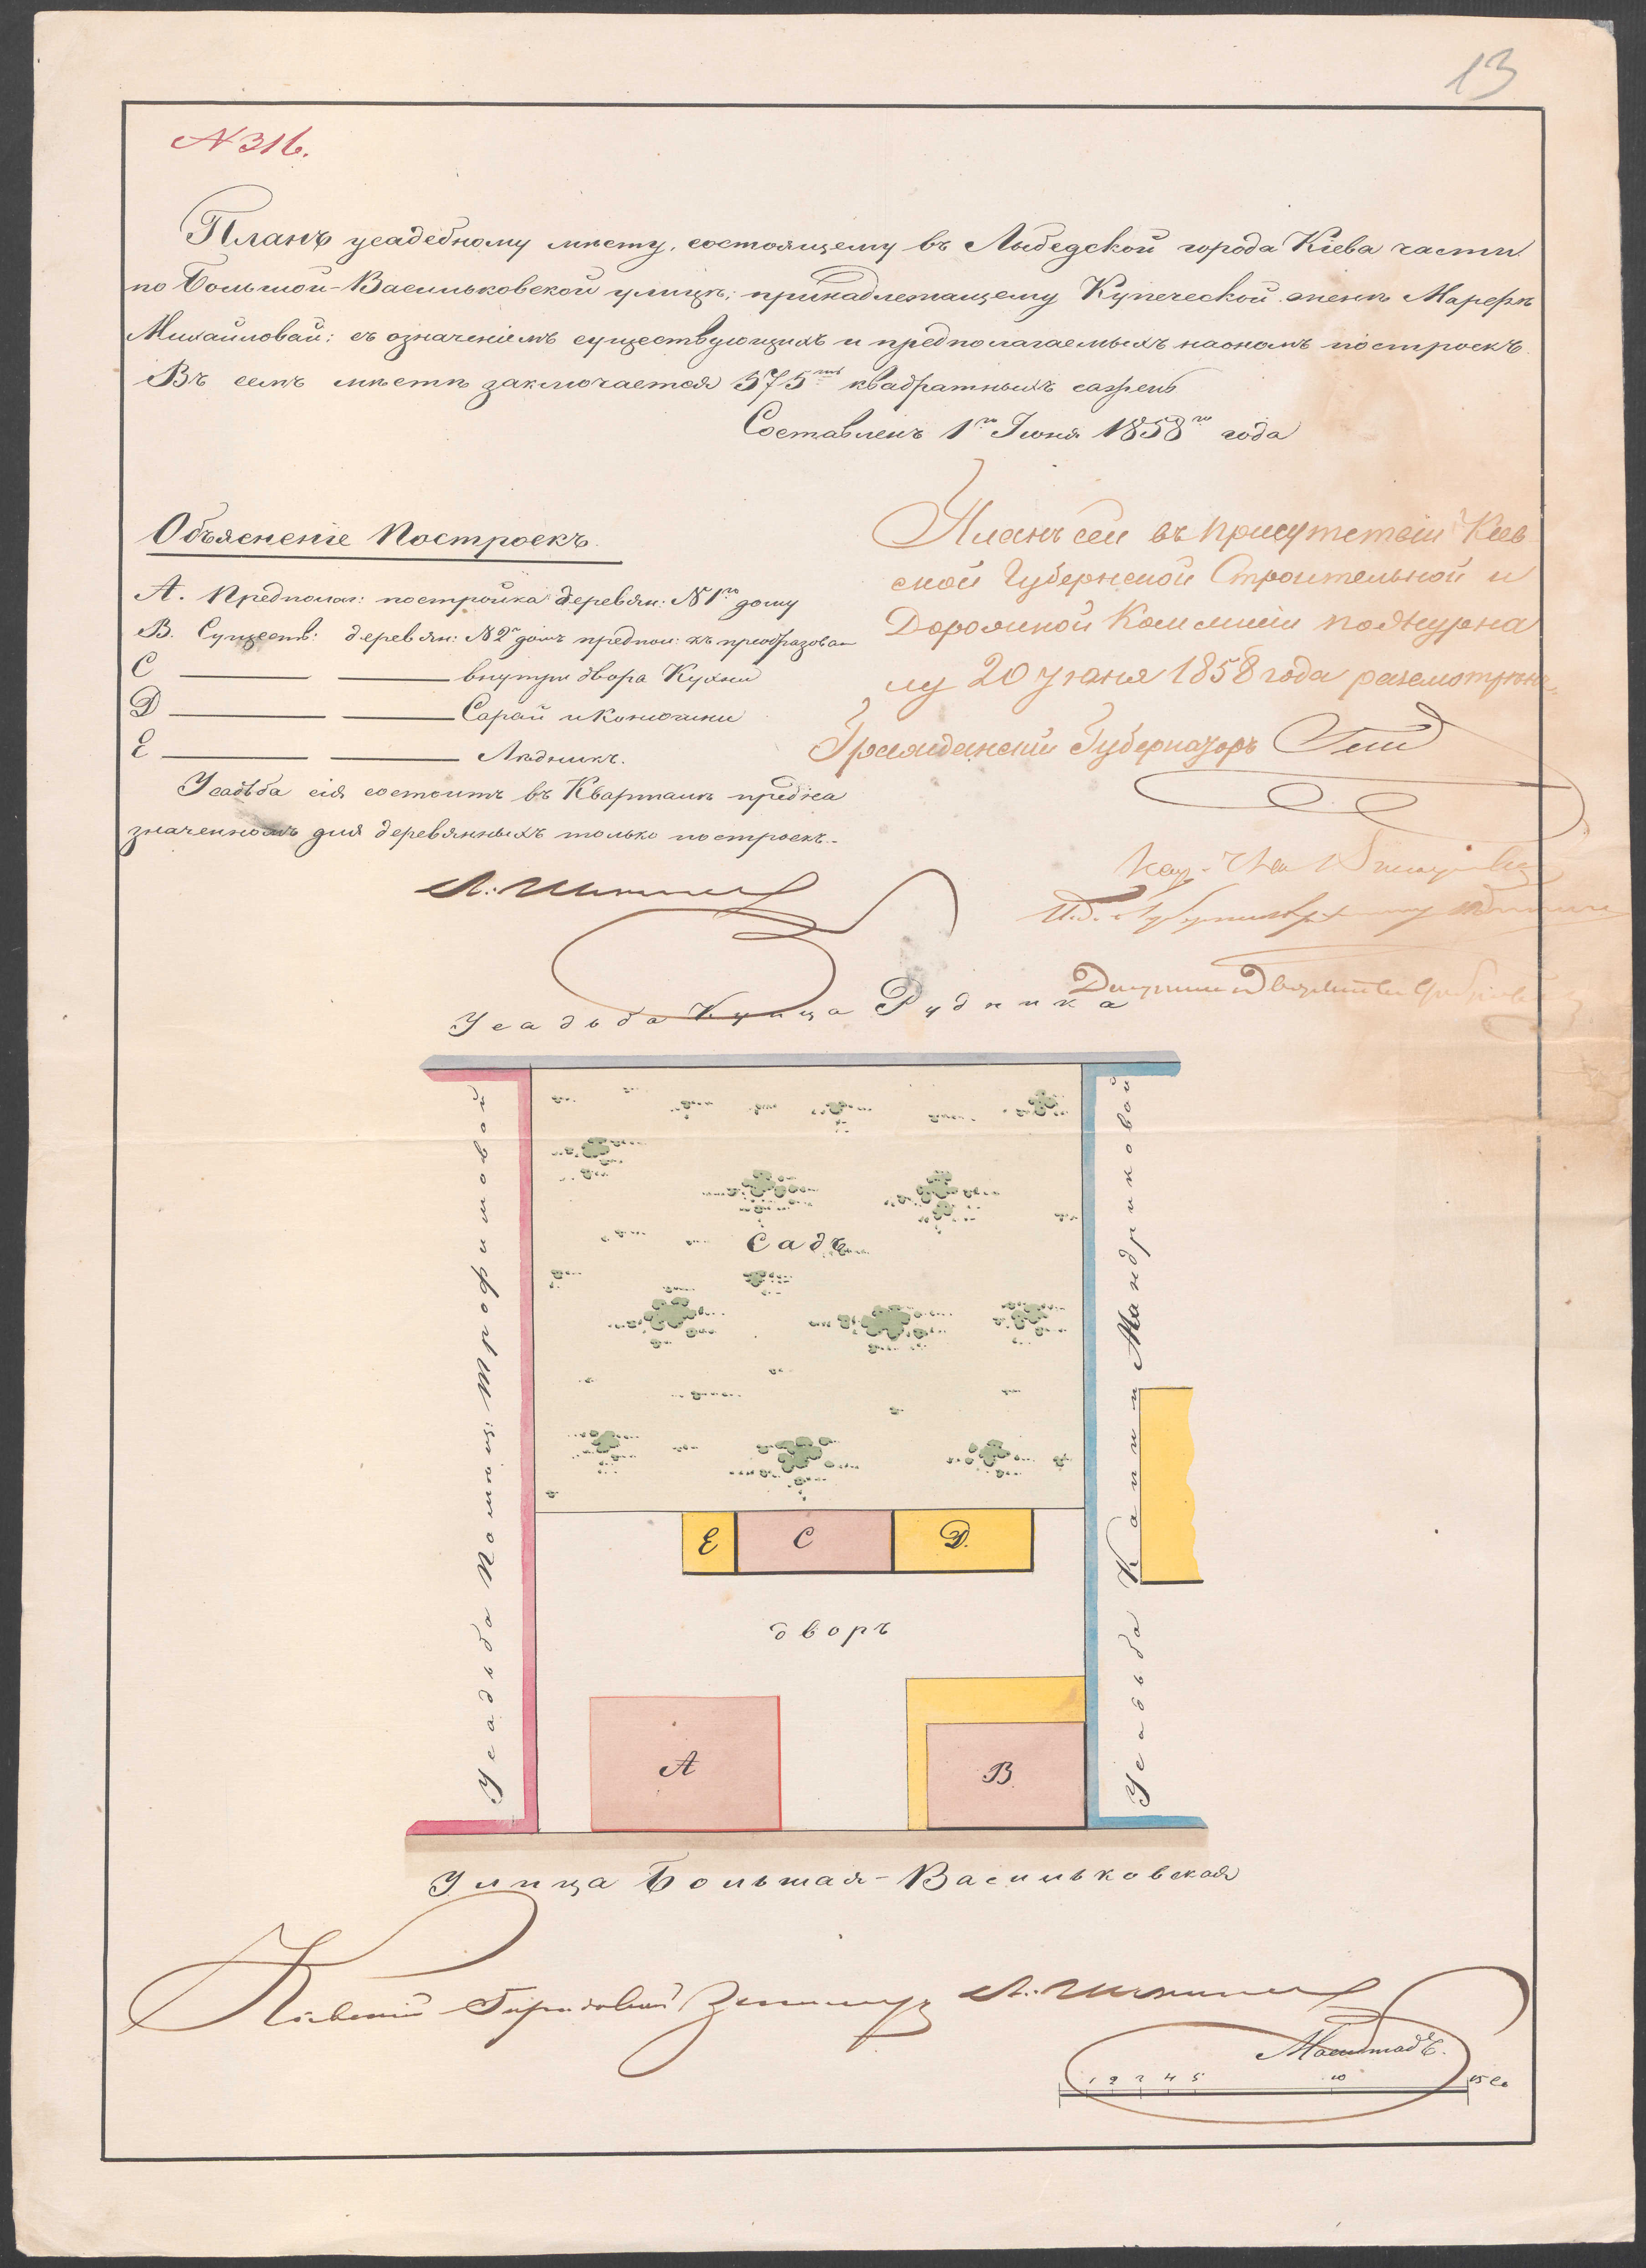 13
N 316.
Планъ усадебному мѣсту, состоящему въ Лыбедской города Кіева части
по Большой-Васильковской улицѣ; принадлежащему Купеческой женѣ Марѳѣ
Михайловой; съ означеніемъ существующихъ и предполагаемыхъ наономъ построекъ.
Въ семъ мѣстѣ заключается 575 квадратныхъ сажень
Составленъ 1го Іюня 1858го года
Объясненіе Построекъ.
А. Предполаг: постройка деревян: N 1го дому
В. Существ: деревян: N 2го домъ предпол: къ преобразован
С внутри двора Кухни
D Сарай и Конюшни
Е Лѣдникъ.
Усадьба сія состоитъ въ Кварталѣ предна
значенномъ для деревянныхъ только построекъ.-
Планъ сей въ присутствіи Кіев
ской Губернской Строительной и
Дорожной Коммисіи по журна
лу 20 Іюня 1858 года разсмотрѣнъ
Гражданскій Губернаторъ
Усадьба Купца Рудника
Усадьба Помѣщ: Трофимовой
Садъ
Усадьба Капит Мандриковой
Е
С
D.
дворъ
А
В
Улица Большая-Васильковская
Кіевскій Городовой Землемѣръ
Масштабъ.
1 2 3 4 5 10 15 Са